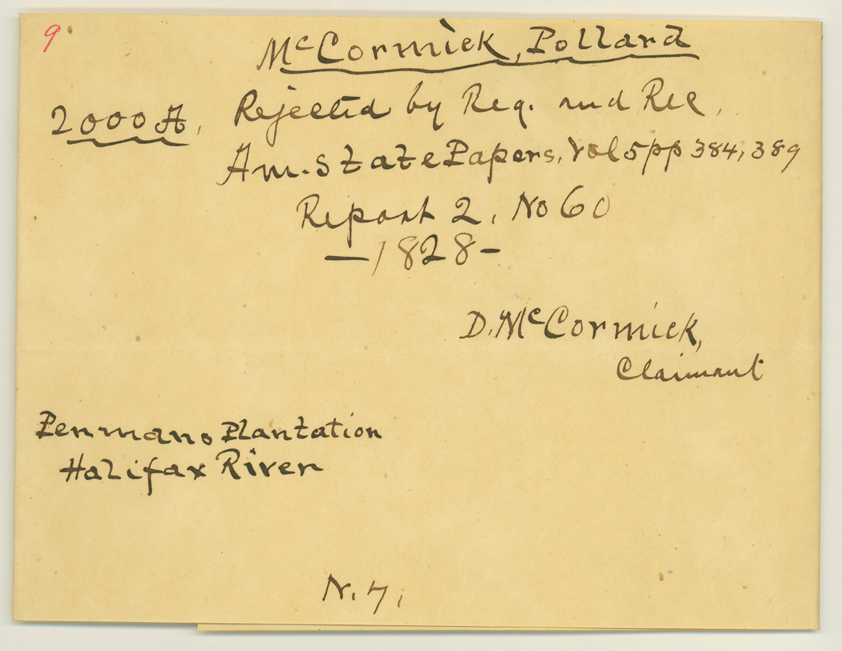 9
McCormick, Pollard
2000 A. Rejected by Reg. and Rec.
Am. State Papers, Vol 5 pp 384, 389
Report 2, No 60
— 1828 –
D. McCormick,
Claimant
Penmans Plantation
Halifax River
N. 7.